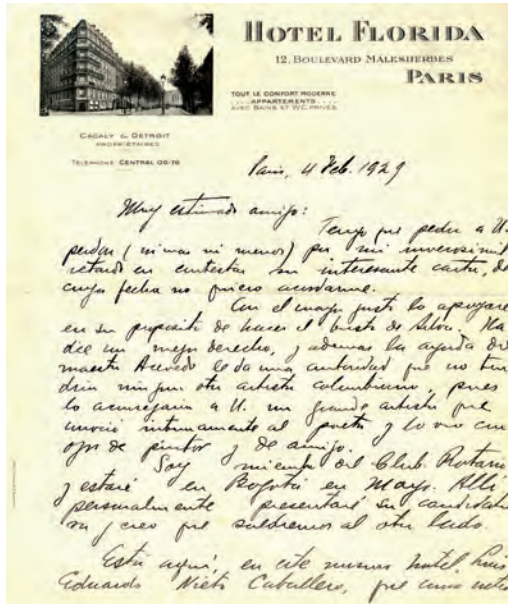 HOTEL FLORIDA
12, BOULEVARD MALESHERBES
PARIS
TOUT LE CONFORT MODERNE
APPARTEMENTS
AVEC BAINS ET W.C. PRIVÉS
CAZALY & DETROIT
PROPRIÉTAIRES
TÉLÉPHONE CENTRAL 06-76
Paris, 4 Feb. 1929
Muy estimado amigo:
Tengo que pedir a U.
perdón (ni mas ni menos) por mi inverosimil
retardo en contestar su interesante carta, de
cuya fecha no quiero acordarme.
Con el mayor gusto lo apoyaré
en su propósito de hacer el busto de Silva. Na
die con mejor derecho, y ademas la ayuda del
maestro Acevedo le da una autoridad que no ten
dria ningun otro artista colombiano, pues
lo aconsejaria a U. un grande artista que
conoció intimamente al poeta y lo vió con
ojos de pintor y de amigo.
Soy miembro del Club Rotario
y estaré en Bogotá en Mayo. Allí
personalmente presentaré su candidatu
ra y creo que saldremos al otro lado.
Está aquí, en este mismo hotel, Luis
Eduardo Nieto Caballero, que